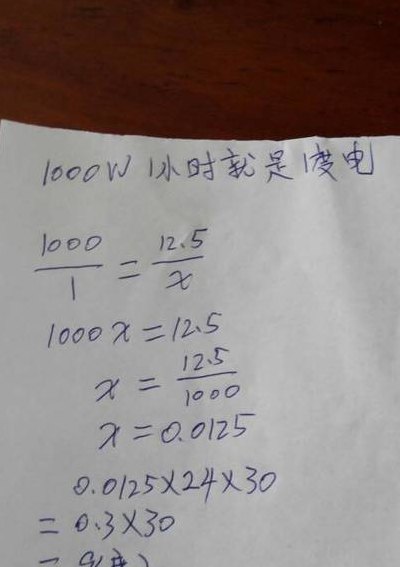 1000W 1小时就是1度电
1000/1 = 12.5/x
1000x = 12.5
x = 12.5/1000
x = 0.0125
0.0125×24×30
= 0.3×30
= 9(度)